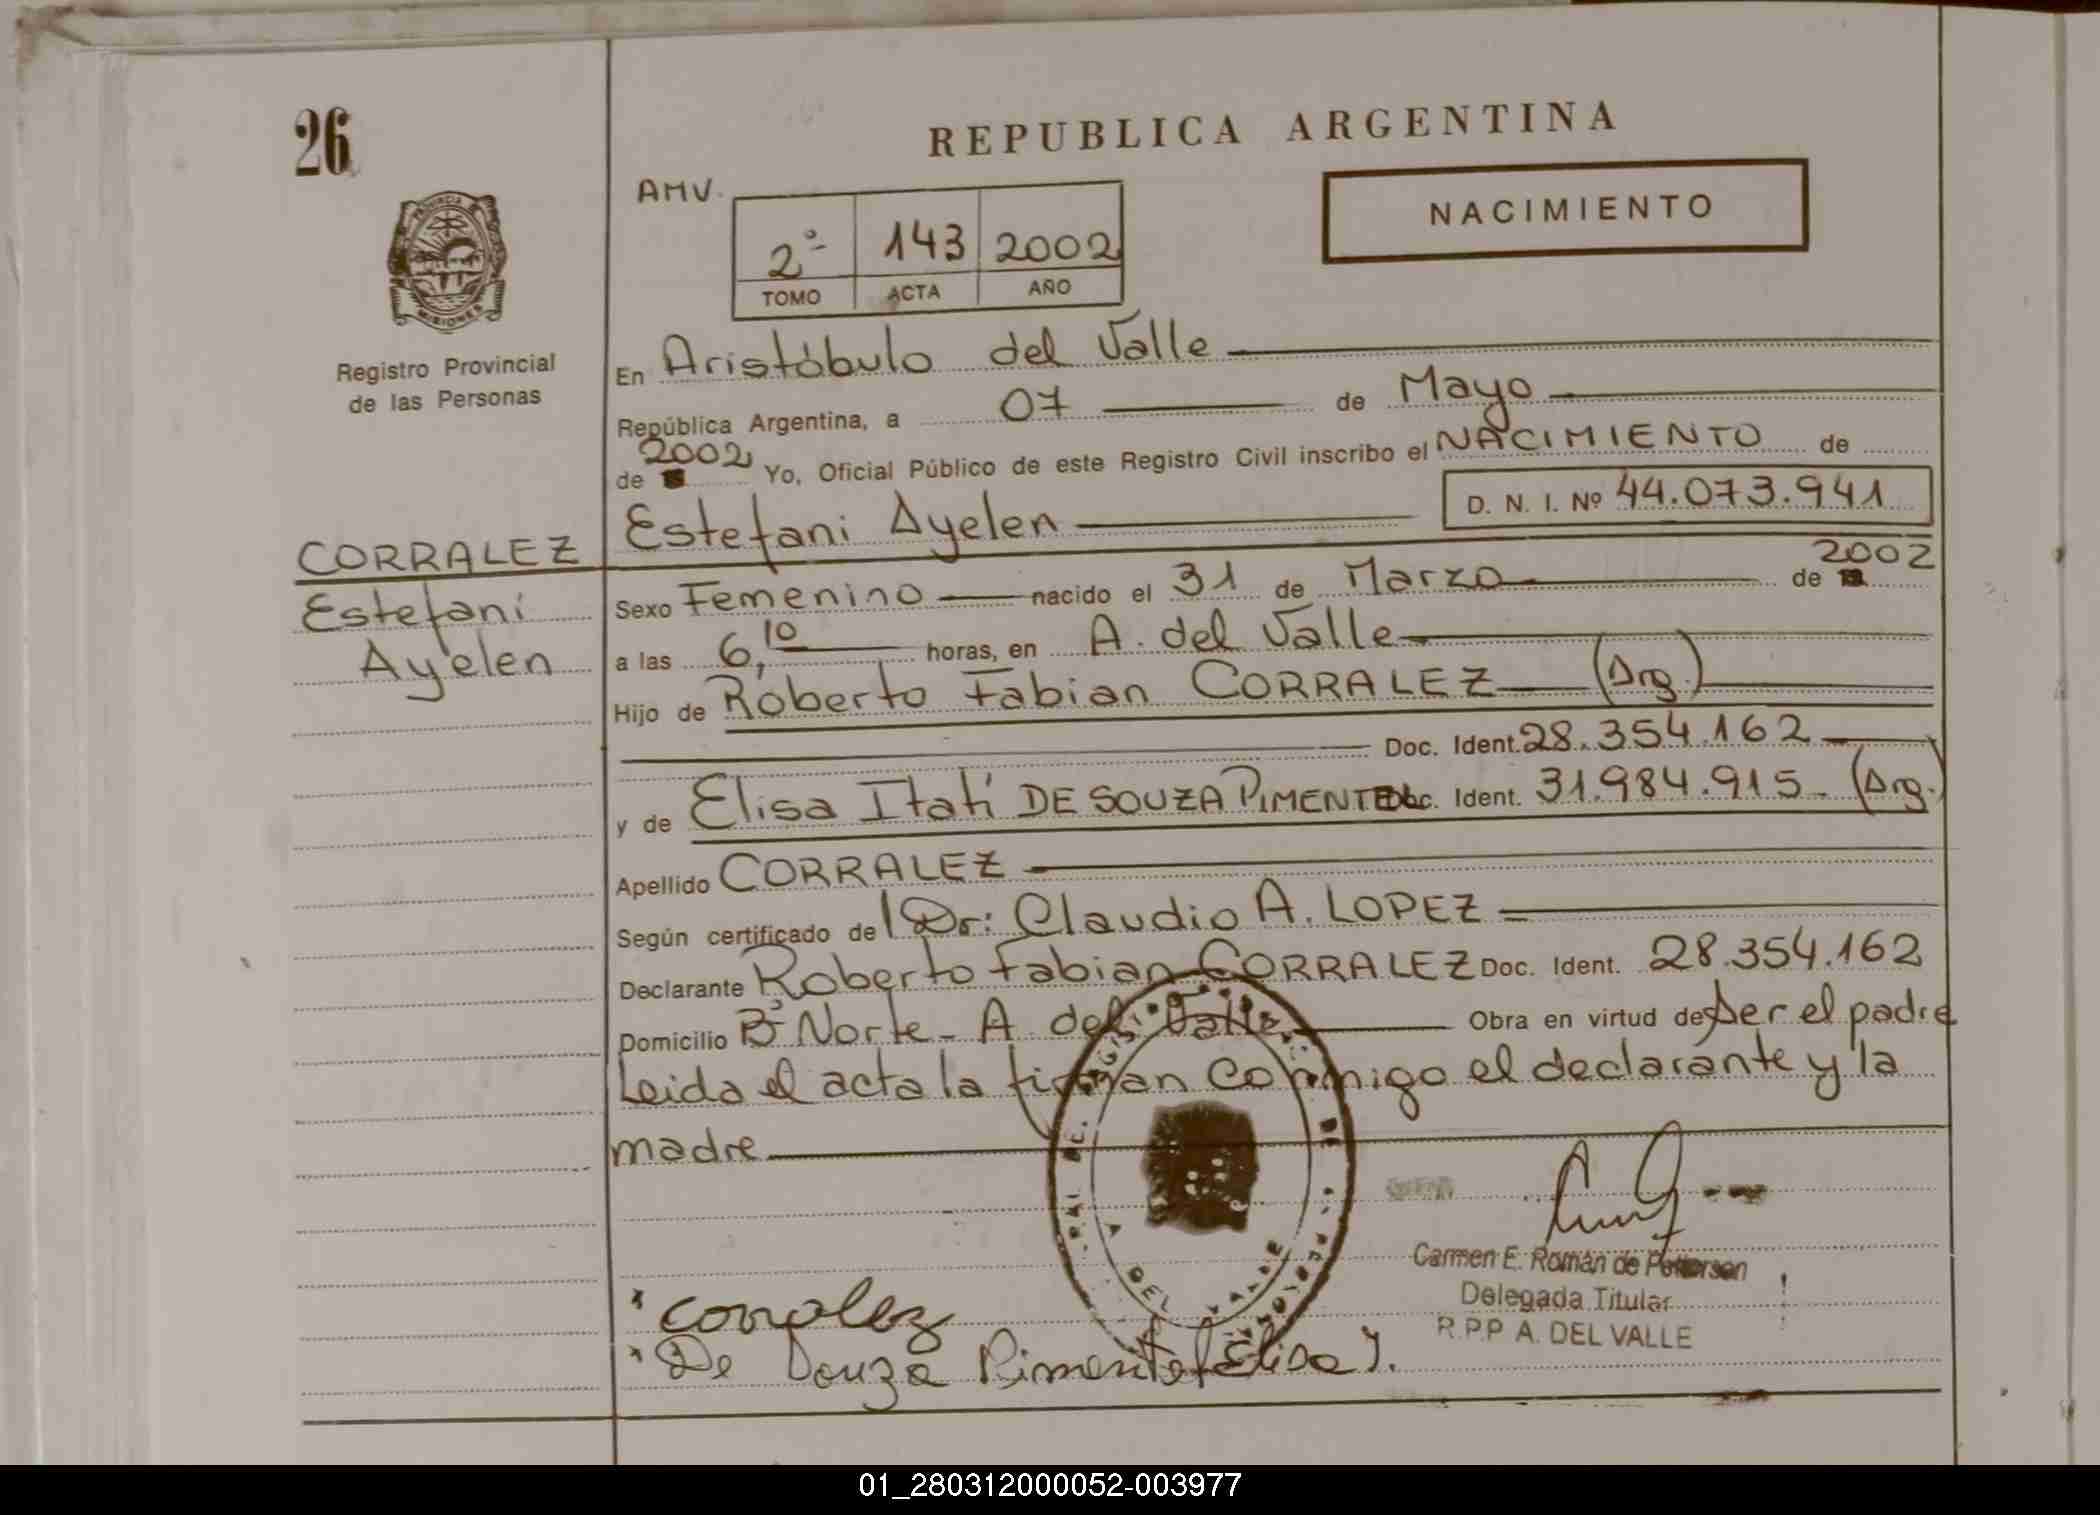 26
REPUBLICA ARGENTINA
AMV.
NACIMIENTO
2º 143 2002
TOMO ACTA AÑO
PROVINCIA
MISIONES
Registro Provincial
de las Personas
En Aristóbulo del Valle
República Argentina, a 07 de Mayo
de 2002 Yo, Oficial Público de este Registro Civil inscribo el NACIMIENTO de
D. N. I. Nº 44.073.941
Estefani Ayelen
CORRALEZ
Estefani
Ayelen
Sexo Femenino nacido el 31 de Marzo de 2002
a las 6,10 horas, en A. del Valle
Hijo de Roberto Fabian CORRALEZ (Arg.)
Doc. Ident. 28.354.162
y de Elisa Itatí DE SOUZA PIMENTEL Doc. Ident. 31.984.915. (Arg.)
Apellido CORRALEZ
Según certificado de Dr: Claudio A. LOPEZ
Declarante Roberto Fabian CORRALEZ Doc. Ident. 28.354.162
Domicilio Bº Norte - A. del Valle Obra en virtud de ser el padre
Leida el acta la firman conmigo el declarante y la
madre
A. DEL VALLE
Carmen E. Román de Petterson
Delegada Titular
R.P.P A. DEL VALLE
Corralez
De Souza Pimentel Elisa I.
01_280312000052-003977